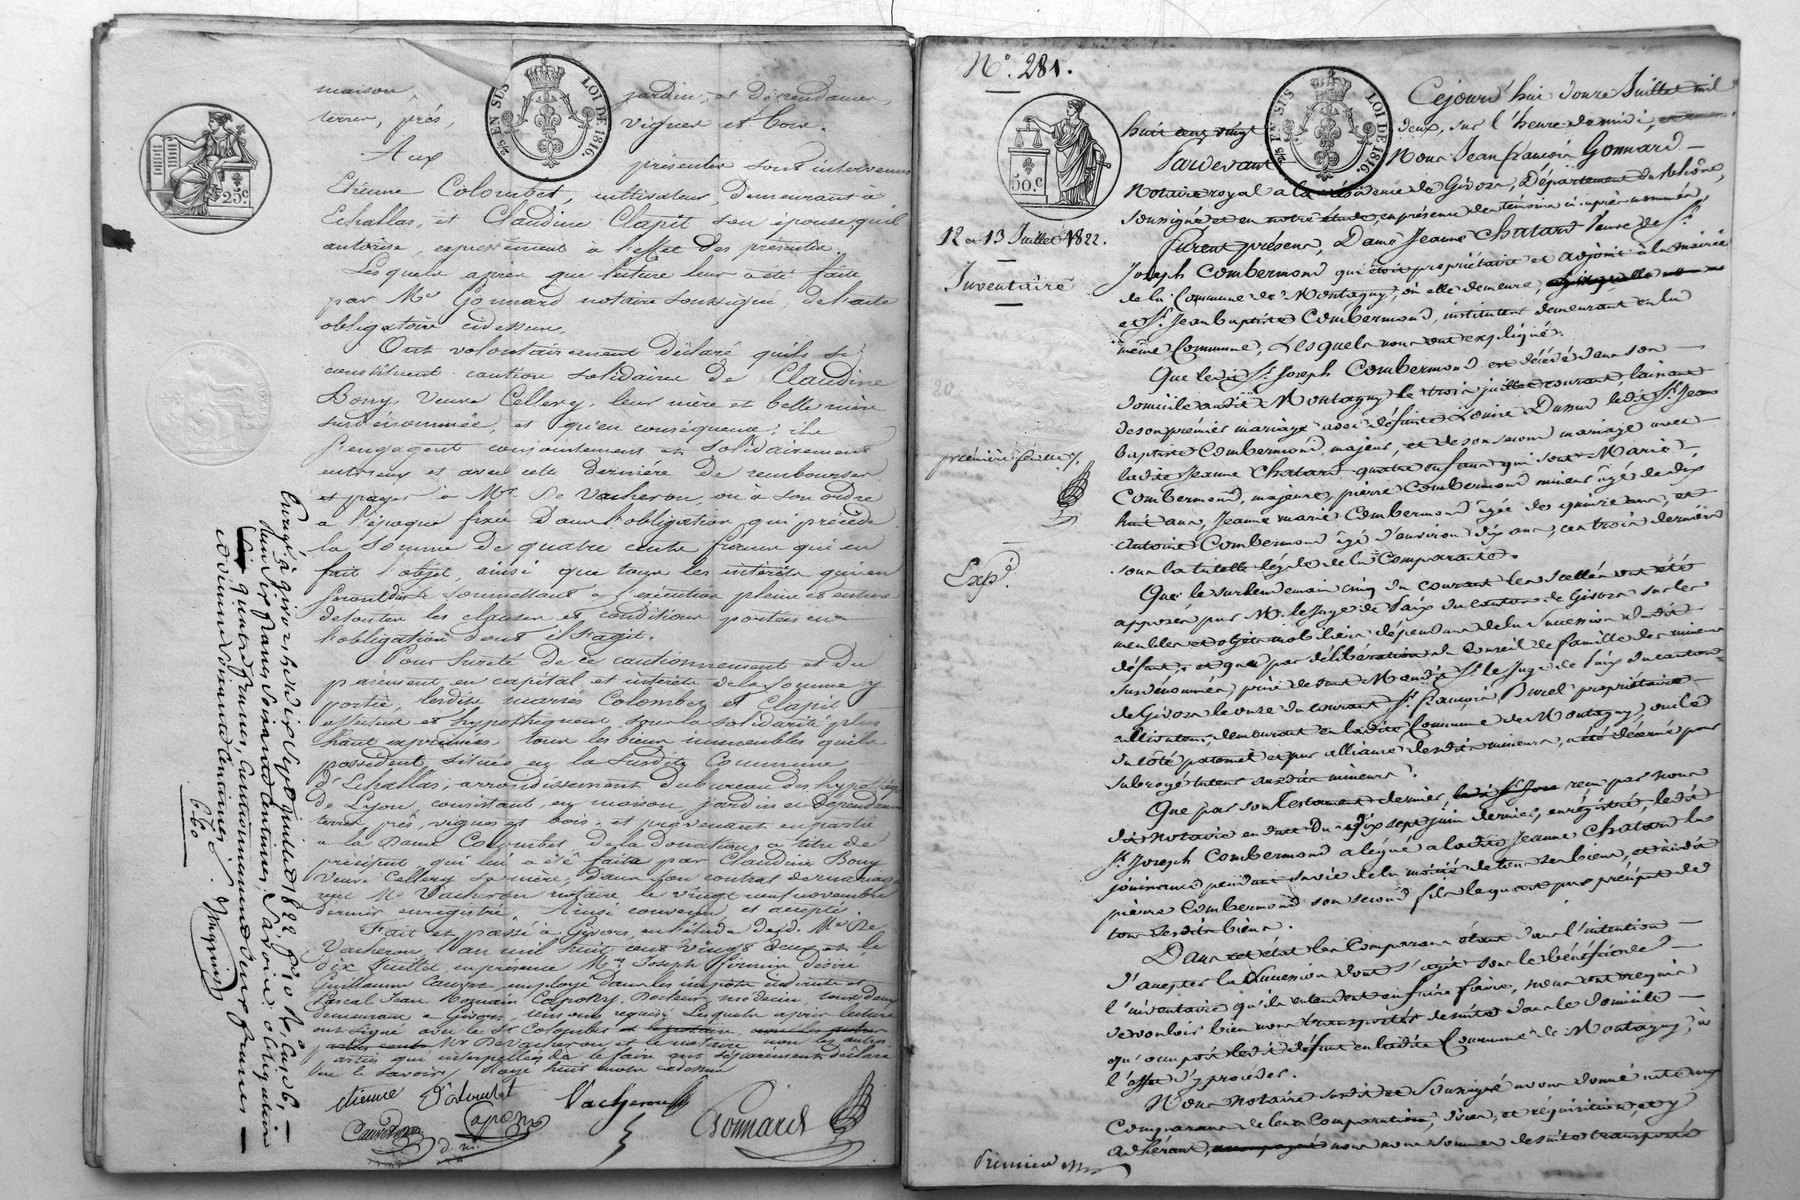 maison, jardin, et dépendances,
terres, prés, vignes et bois.
25 EN SUS LOI DE 1816.
25c
Aux présentes sont intervenus
Etienne Colombet, cultivateur, demeurant à
Echallas, et Claudine Clapit son épouse, qu'il
autorise, expressément à l'effet des présentes.
Lesquels après que lecture leur a été faite
par Me Gonnard notaire soussigné, de l'acte
obligatoire cidessus,
Ont volontairement déclaré qu'ils se
constituent caution solidaire de Claudine
Bony, veuve Cellery, leur mère et belle mère
susdénommée, et qu'en conséquence, ils
s'engagent conjointement et solidairement
entr'eux et avec cette dernière de rembourser
et payer à Mr De Vacheron ou à son ordre
a l'époque fixée dans l'obligation qui précède
la somme de quatre cents francs qui en
fait l'objet, ainsi que tous les intérêts qui en
se soumettant à l'exécution pleine et entière
de toutes les clauses et conditions portées en
l'obligation dont il s'agit.
Pour sureté de ce cautionnement et du
paiement en capital et intérêts de la somme y
portée, lesdits mariés Colombet et Clapit
affectent et hypothèquent, sous la solidarité plus
haut exprimée, tous les biens immeubles qu'ils
possèdent, situés en la susdite commune
d'Echallas, arrondissement du bureau des hypothèques
de Lyon, consistant en maison, jardin et dépendances
terres prés, vignes et bois, et provenant en partie
a la Dame Colombet, de la donation à titre de
préciput, qui lui a été faite par Claudine Bony
veuve Cellery sa mère, dans son contrat de mariage
reçu Me Vacheron notaire le vingt neuf novembre
dernier enregistré. Ainsi convenu et accepté.
Fait et passé à Givors, en l'étude dud. Me De
Vacheron l'an mil huit cent vingt deux et le
dix Juillet, en présence Mrs Joseph désiré
Guillaume employé dans les impots indirects et
Pascal Jean Romain Capony, Docteur médecin, tous deux
demeurant à Givors, témoins requis, lesquels après lecture
ont signé avec le Sr Colombet
Mr DeVacheron et le notaire non les autres
parties qui interpellées de le faire ont séparément déclaré
ne le savoir, Rayé huit mots cidessus
etienne Colombet Vacheron
Gonnard
d. m.
Enregé à Givors le dix sept juillet 1822 fo 10 Ro Cases 6,
Reçu deux francs soixante centimes, Savoir; obligation
quatre francs, Cautionnement deux francs
et dixième soixante centimes.
6,60
No 281.
50c
25 EN SUS LOI DE 1816.
12 et 13 Juillet 1822.
Inventaire
première feuille
Exp.
Cejourd'hui douze Juillet mil
huit cent vingt deux, sur l'heure de midi,
Pardevant Nous Jean françois Gonnard
Notaire royal a la résidence de Givors, Département du Rhône,
soussigné et en notre étude, en présence des témoins ci après nommés,
Furent présens, Dame Jeanne Chatard Veuve de Sr
Joseph Combermond qui étoit propriétaire et adjoint à la mairie
de la Commune de Montagny, où elle demeure,
et Sr Jean baptiste Combermond, instituteur demeurant en la
même Commune, Lesquels nous ont expliqué.
Que ledit Sr Joseph Combermond est décédé dans son
domicile audit Montagny le trois juillet courant, laissant
de son premier mariage avec défunte Louise Dumas ledit Sr Jean
Baptiste Combermond, majeur, et de son second mariage avec
ladite Jeanne Chatard quatre enfans qui sont Marie
Combermond, majeure, pierre Combermond mineur âgé de dix
huit ans, Jeanne marie Combermond âgée de quinze ans, et
Antoine Combermond âgé d'environ dix ans, ces trois derniers
sous la tutelle légale de la Comparante.
Que le surlendemain cinq du courant les scellés ont été
apposés par Mr le Juge de Paix du canton de Givors sur les
meubles et objets mobiliers dépendans de la succession dudit
défunt, et que par délibération du Conseil de famille des mineurs
susdénommés, prise devant Mondit Sr le Juge de Paix du canton
de Givors le onze du courant Sr françois Burel propriétaire
cultivateur, demeurant en ladite Commune de Montagny, oncle
du côté paternel et par alliance desdits mineurs, a été décerné pour
subrogé tuteur auxdits mineurs.
Que par son testament dernier, reçu par nous
dit notaire en date du dix sept juin dernier, enregistré, ledit
Sr Joseph Combermond a légué a ladite Jeanne Chatard la
jouissance pendant sa vie de la moitié de tous ses biens, et audit
pierre Combermond son second fils le quart par préciput de
tous sesdits biens.
Dans cet état les Comparans étant dans l'intention
d'accepter la succession dont s'agit sous le bénéfice de
l'inventaire qu'ils entendent en faire faire, nous ont requis
de vouloir bien nous transporter de suite dans le domicile
qu'occupoit ledit défunt en ladite Commune de Montagny, à
l'effet d'y procéder.
Nous notaire susdit et soussigné avons donné acte aux
Comparans de leurs Comparution, dires, et réquisition, et y
adhérant, nous nous sommes de suite transporté
Première